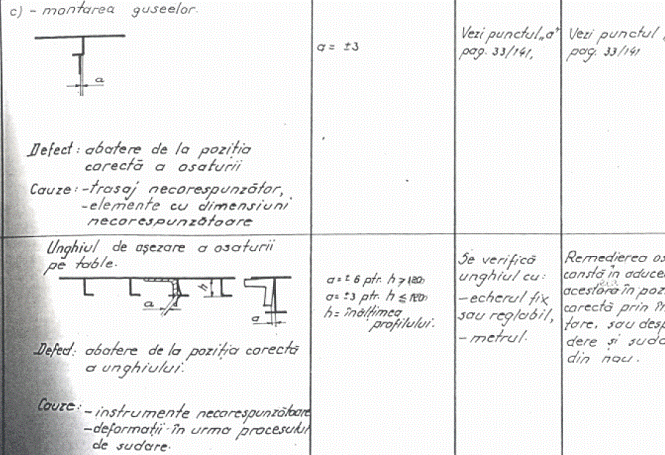 c) - montarea guseelor.
a
Defect: abatere de la poziția
corectă a osaturii
Cauze: - trasaj necorespunzător,
- elemente cu dimensiuni
necorespunzătoare
a = ±3
Vezi punctul „a"
pag. 33/141,
Vezi punctul „
pag. 33/141
Unghiul de așezare a osaturii
pe table.
a
h
a
Defect: abatere de la poziția corectă
a unghiului.
Cauze: - instrumente necorespunzătoare
- deformații în urma procesului
de sudare.
a = ±6 ptr. h >
a = ±3 ptr. h ≤
h = înălțimea
profilului.
Se verifică
unghiul cu:
- echerul fix
sau reglabil,
- metrul.
Remedierea os
constă în aduce
acestora în poz
corectă prin în
tare, sau desp
dere și suda
din nou.